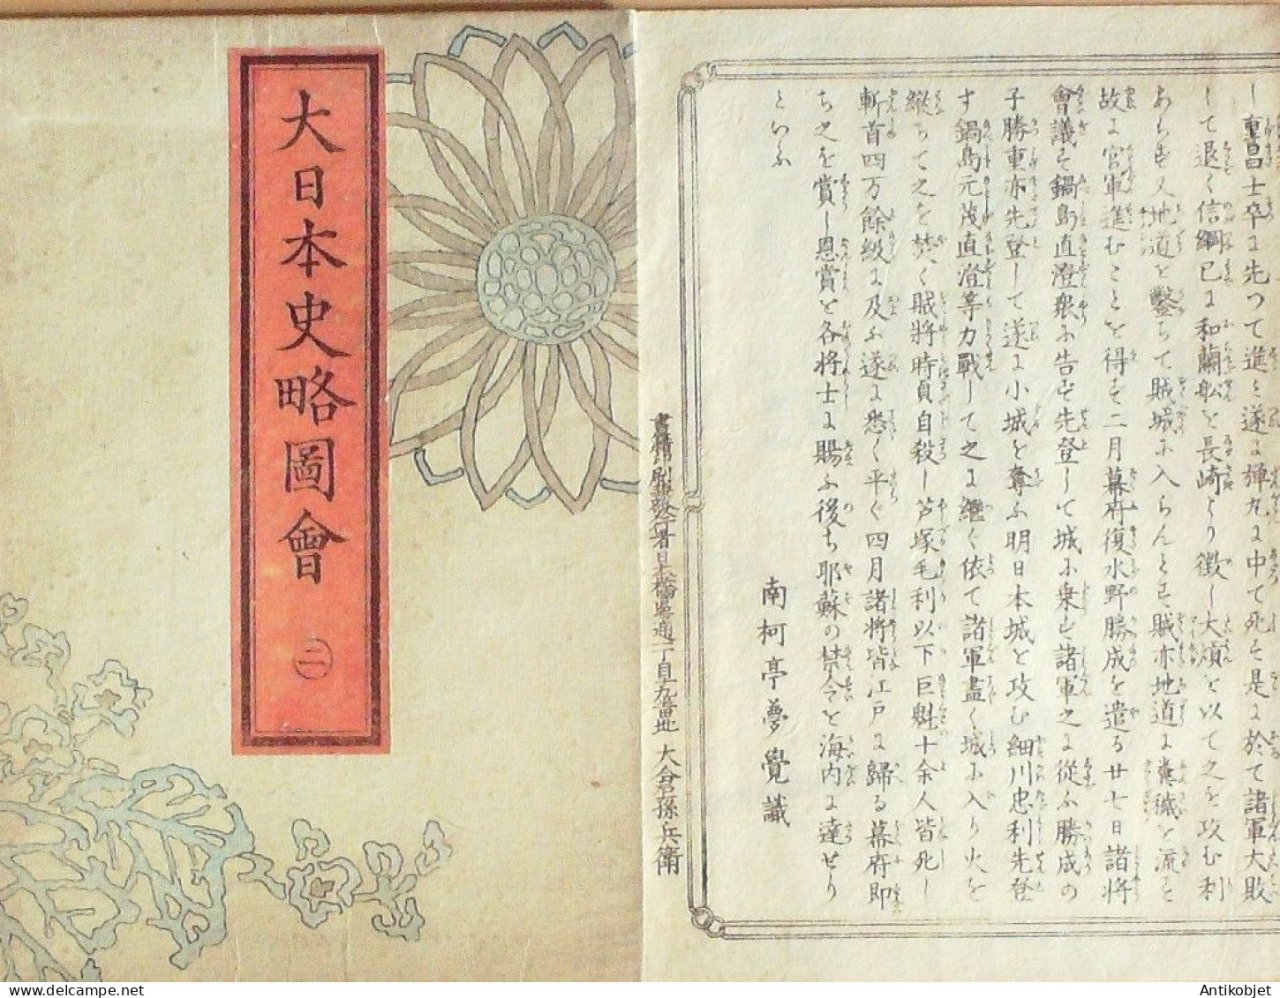 大日本史略圖會
二
し重昌士卒に先つて進ミ遂に弾丸に中て死す是に於て諸軍大敗
して退く信綱已に和蘭舩を長崎より徴し大熕を以て之を攻む利
あらず又地道を鑿ちて賊城に入らんとす賊亦地道に糞穢を流す
故に官軍進むことを得ず二月幕府復水野勝成を遣る廿七日諸将
會議す鍋島直澄衆に告ず先登して城に乗ず諸軍之に従ふ勝成の
子勝重亦先登して遂に小城を奪ふ明日本城を攻む細川忠利先登
す鍋島元茂直澄等力戰して之に継ぐ依て諸軍盡く城に入り火を
縦ちて之を焚く賊將時貞自殺し芦塚毛利以下巨魁十余人皆死し
斬首四万餘級に及ふ遂に悉く平ぐ四月諸将皆江戸に歸る幕府即
ち之を賞し恩賞を各将士に賜ふ後ち耶蘇の禁令を海内に達せり
といふ
南柯亭夢覺識
日本橋通一丁目九番地 大倉孫兵衛
delcampe.net
Antikobjet